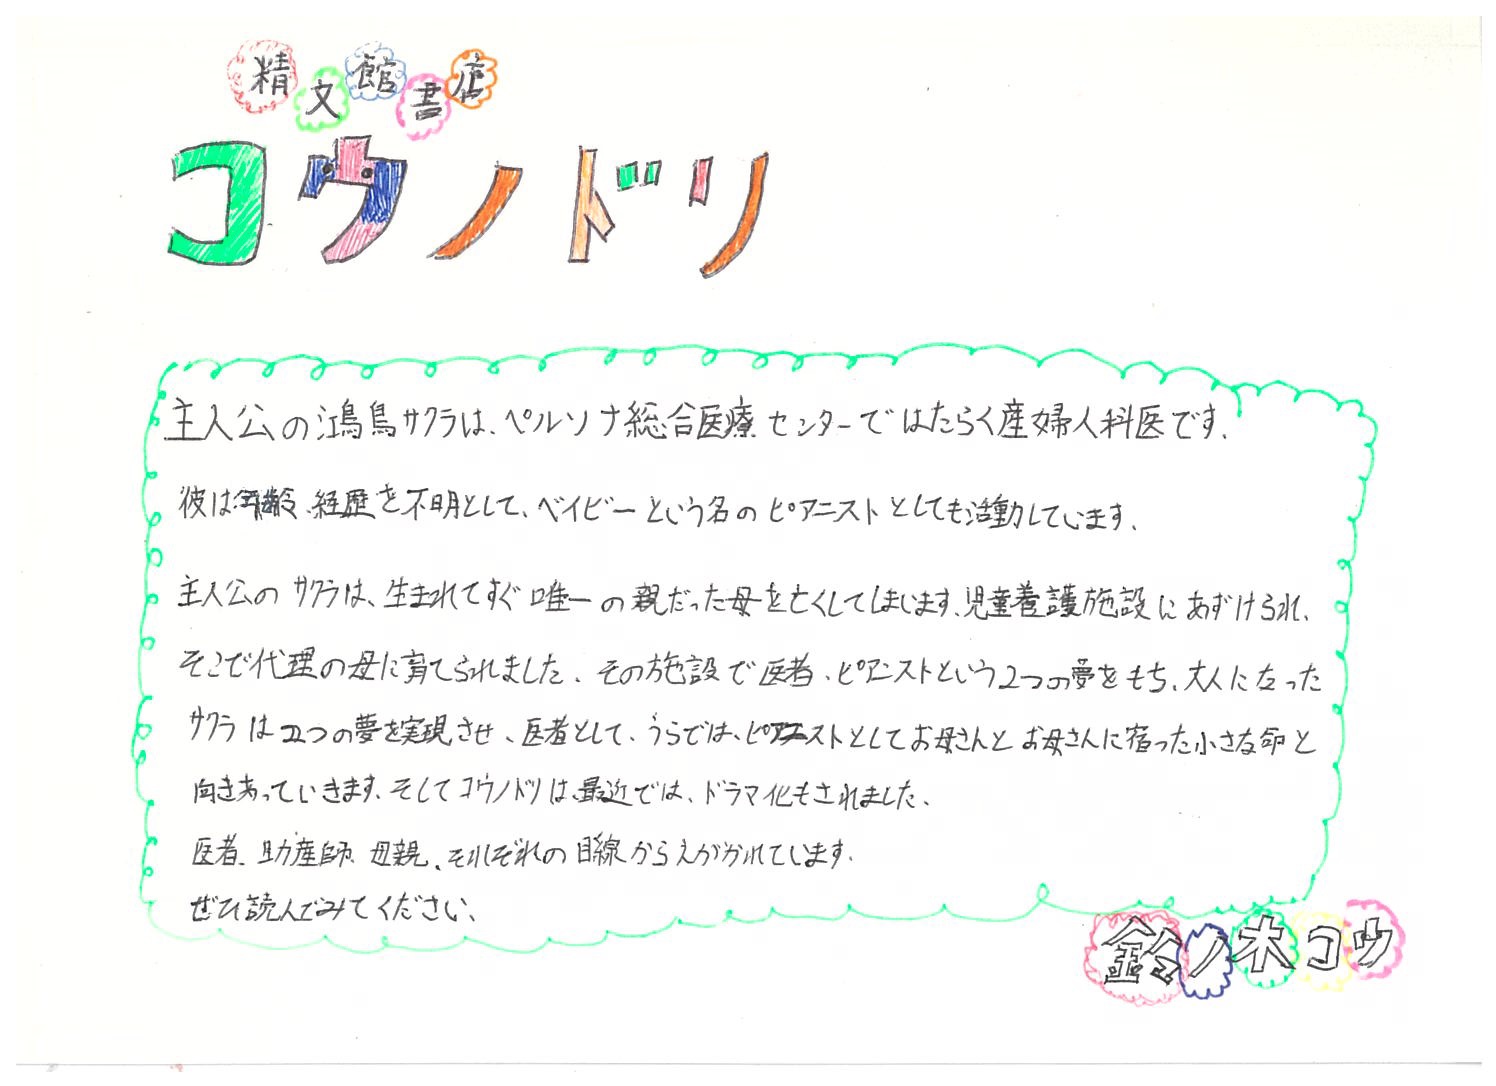 精文館書店
コウノドリ
主人公の鴻鳥サクラは、ペルソナ総合医療センターではたらく産婦人科医です。
彼は年齢、経歴を不明として、ベイビーという名のピアニストとしても活動しています。
主人公のサクラは、生まれてすぐ唯一の親だった母を亡くしてしまいます。児童養護施設にあずけられ、
そこで代理の母に育てられました。その施設で医者、ピアニストという2つの夢をもち、大人になった
サクラは2つの夢を実現させ、医者として、うらでは、ピアニストとしてお母さんとお母さんに宿った小さな命と
向きあっていきます。そしてコウノドリは、最近では、ドラマ化もされました。
医者、助産師、母親、それぞれの目線からえがかれています。
ぜひ読んでみてください。
鈴ノ木コウ